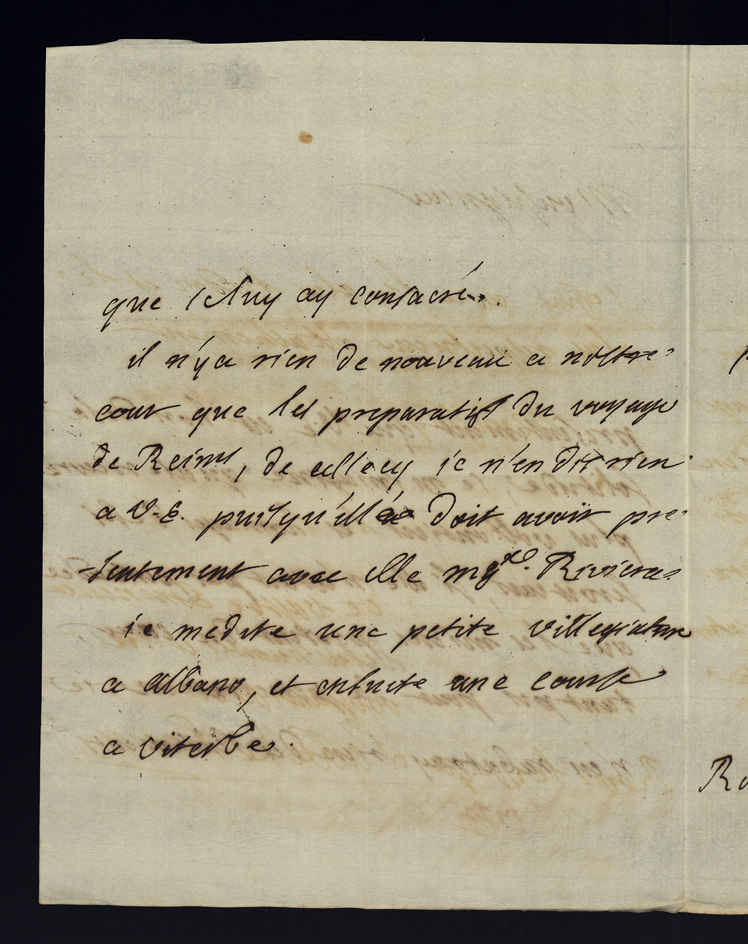 que je luy ay consacré.
il n'y a rien de nouveau a nostre
cour que les preparatifs du voyage
de Reims, de celluy je n'en dit rien
a V. E. puisqu'ill doit avoir pre-
-sentement avec elle mgr. Riviera
je medite une petite villegiature
a albano, et ensuite une course
a viterbe.